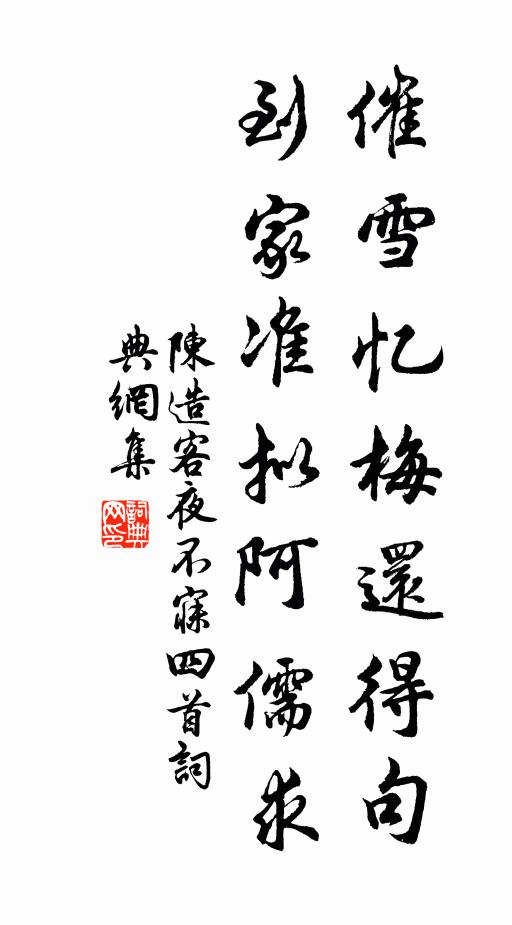 催雪忆梅還得句
到家准拟阿儒求
陳造客夜不寐四首詞
典網集
詞典网印